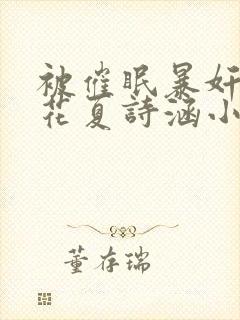 被催眠暴奸
花夏詩涵小
董存瑞